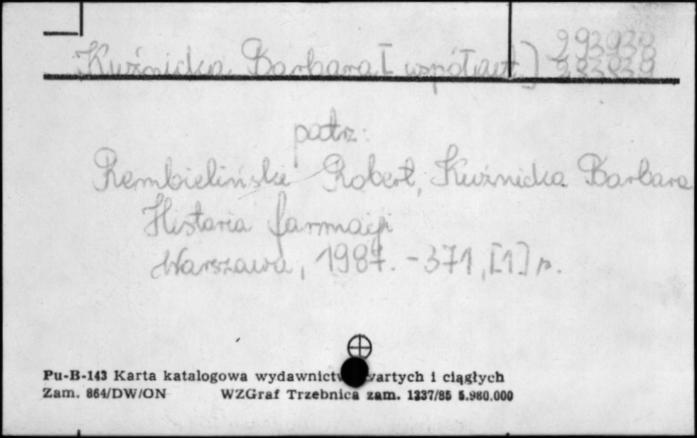 Kuźnicka Barbara [współaut.] 293938
293939
patrz:
Rembieliński Robert, Kuźnicka Barbara
Historia farmacji
Warszawa, 1987. - 371, [1] p.
Pu-B-143 Karta katalogowa wydawnictw zwartych i ciągłych
Zam. 864/DW/ON WZGraf Trzebnica zam. 1337/85 5.980.000